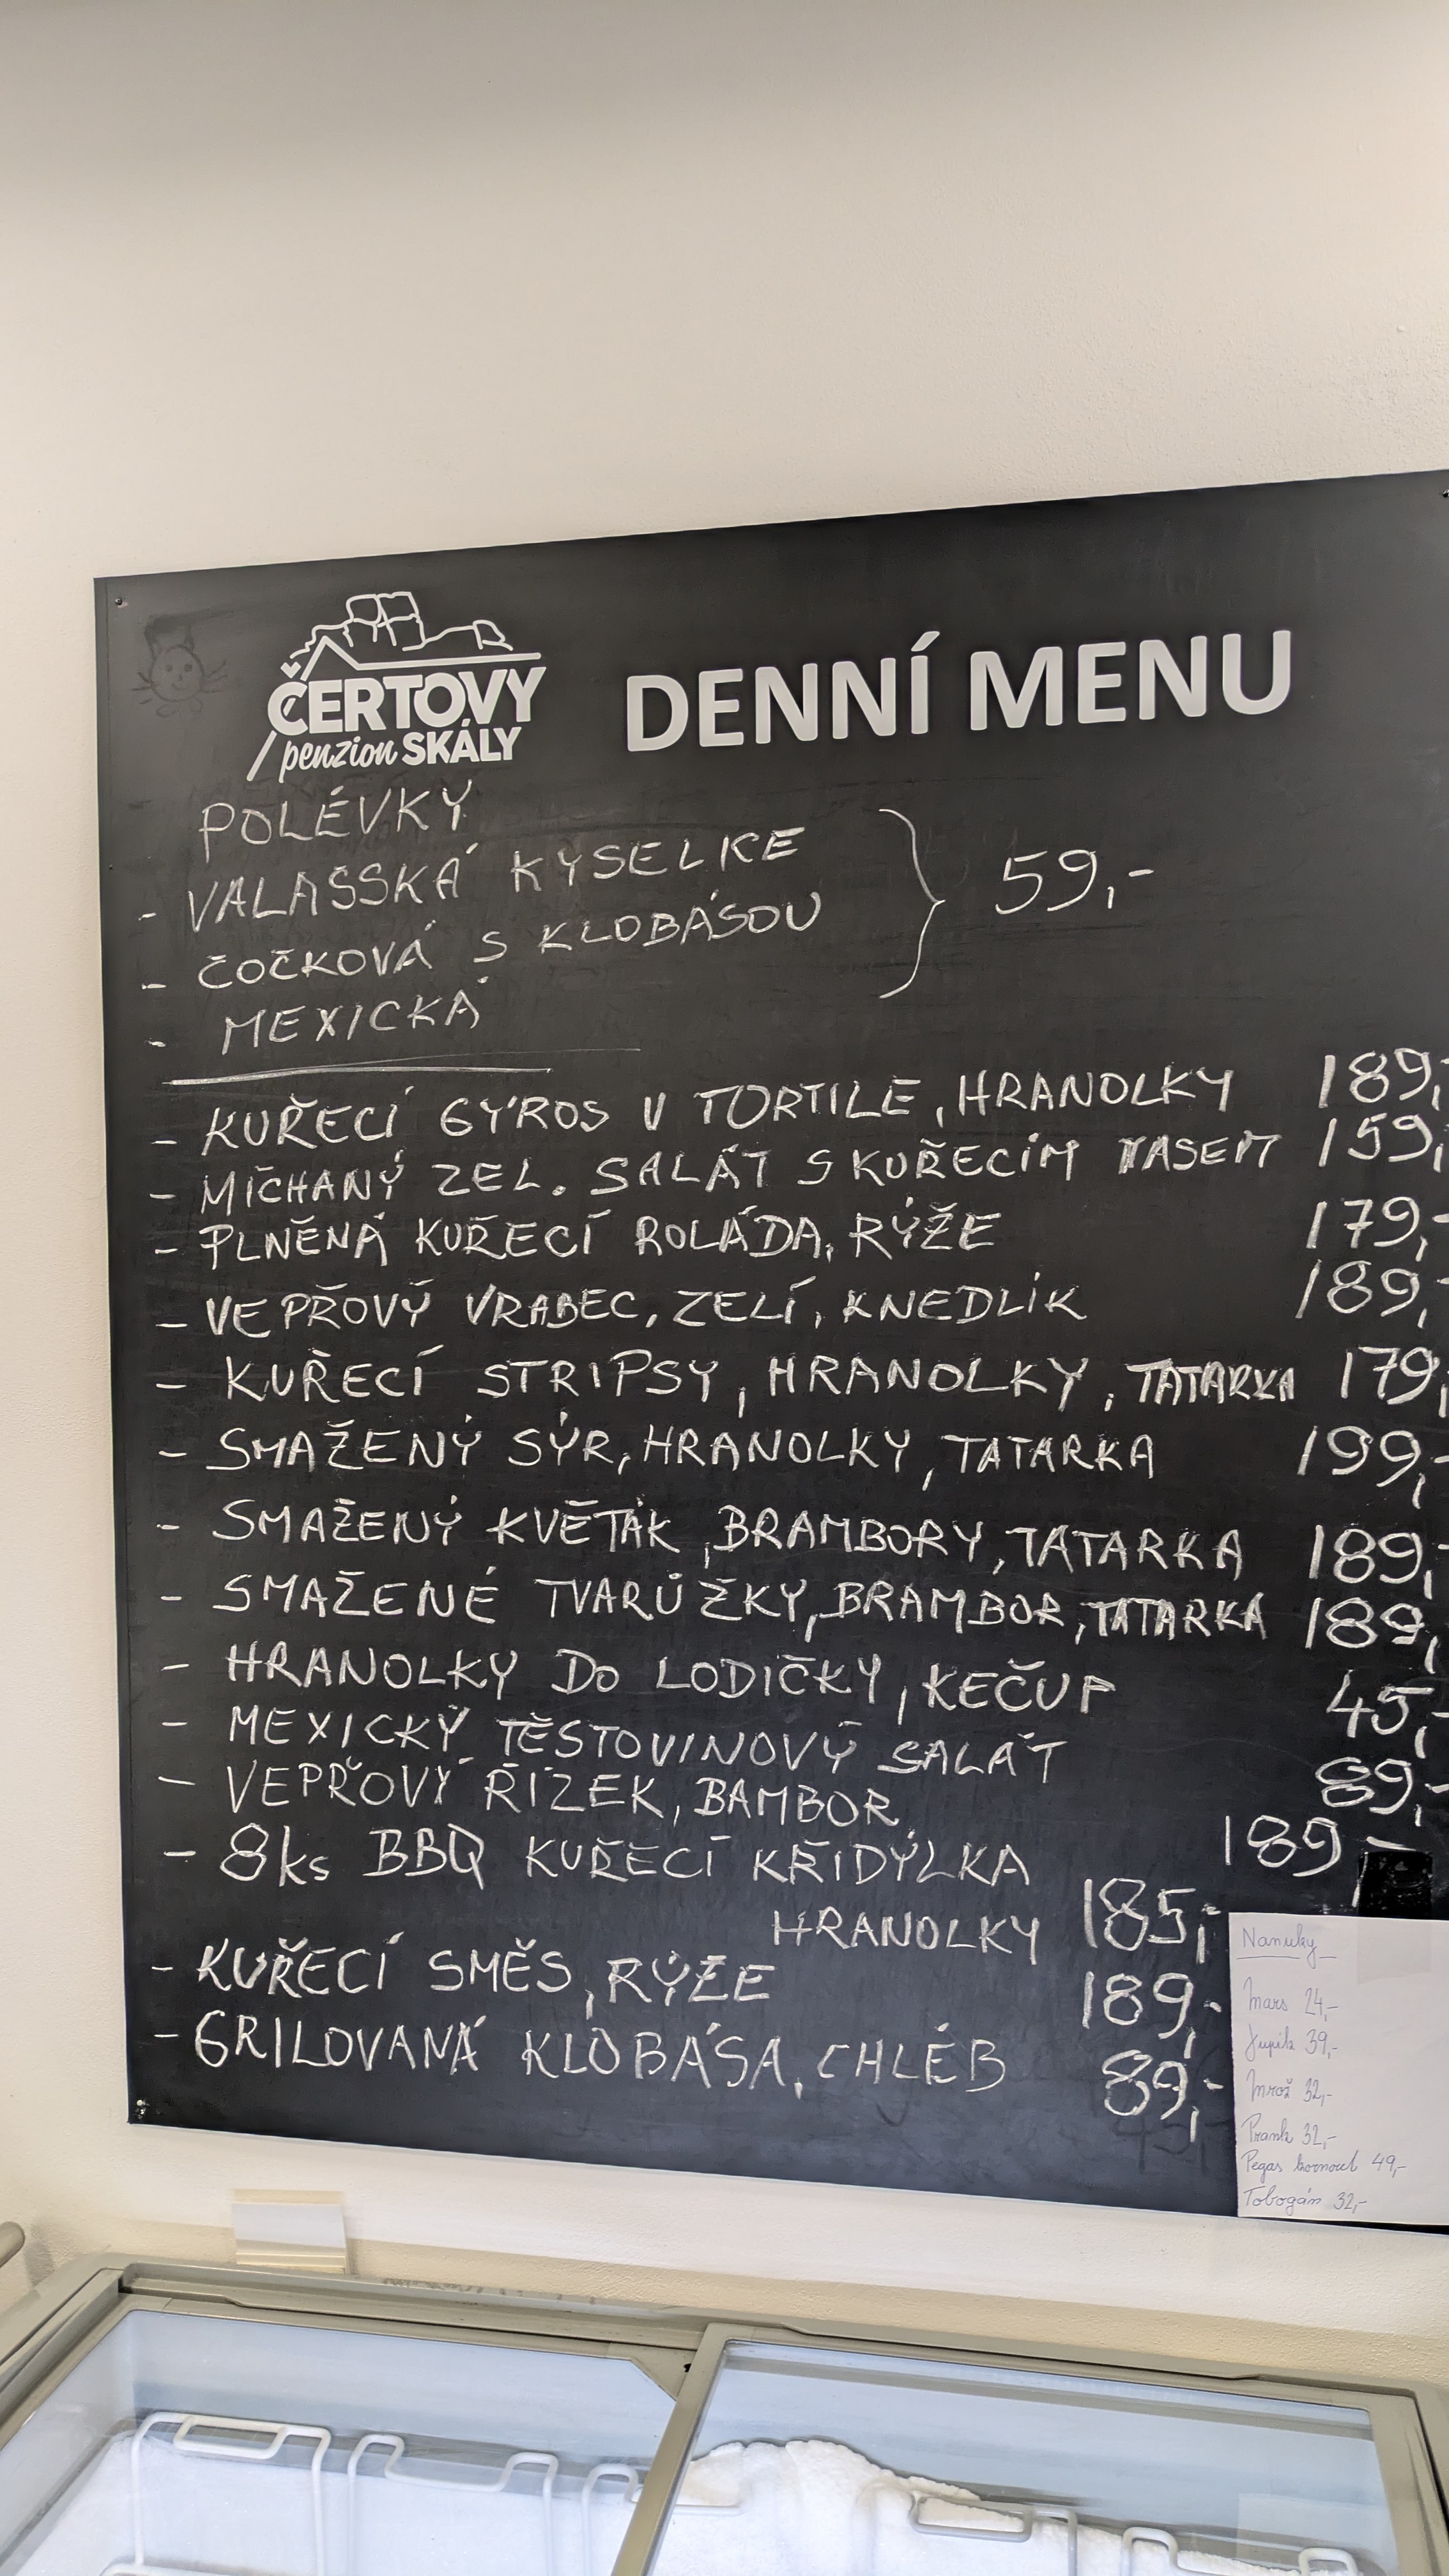 ČERTOVY
penzion SKÁLY
DENNÍ MENU
POLÉVKY
- VALAŠSKÁ KYSELKE
- ČOČKOVÁ S KLOBÁSOU
- MEXICKÁ
59,-
- KUŘECÍ GÝROS V TORTILE, HRANOLKY 189,-
- MÍCHANÝ ZEL. SALÁT S KUŘECÍM MASEM 159,
- PLNĚNÁ KUŘECÍ ROLÁDA, RÝŽE 179,-
- VEPŘOVÝ VRABEC, ZELÍ, KNEDLÍK 189,
- KUŘECÍ STRIPSY, HRANOLKY, TATARKA 179,
- SMAŽENÝ SÝR, HRANOLKY, TATARKA 199,-
- SMAŽENÝ KVĚTÁK, BRAMBORY, TATARKA 189,-
- SMAŽENÉ TVARŮŽKY, BRAMBOR, TATARKA 189,
- HRANOLKY DO LODIČKY, KEČUP 45,-
- MEXICKÝ TĚSTOVINOVÝ SALÁT 89,-
- VEPŘOVÝ ŘÍZEK, BAMBOR, 189-
- 8ks BBQ KUŘECÍ KŘIDÝLKA
HRANOLKY 185,-
- KUŘECÍ SMĚS, RÝŽE 189,-
- GRILOVANÁ KLOBÁSA, CHLÉB 89,-
Nanuky
Mars 24,-
Jupík 39,-
Mrož 32,-
Prank 32,-
Pegas kornout 49,-
Tobogán 32,-